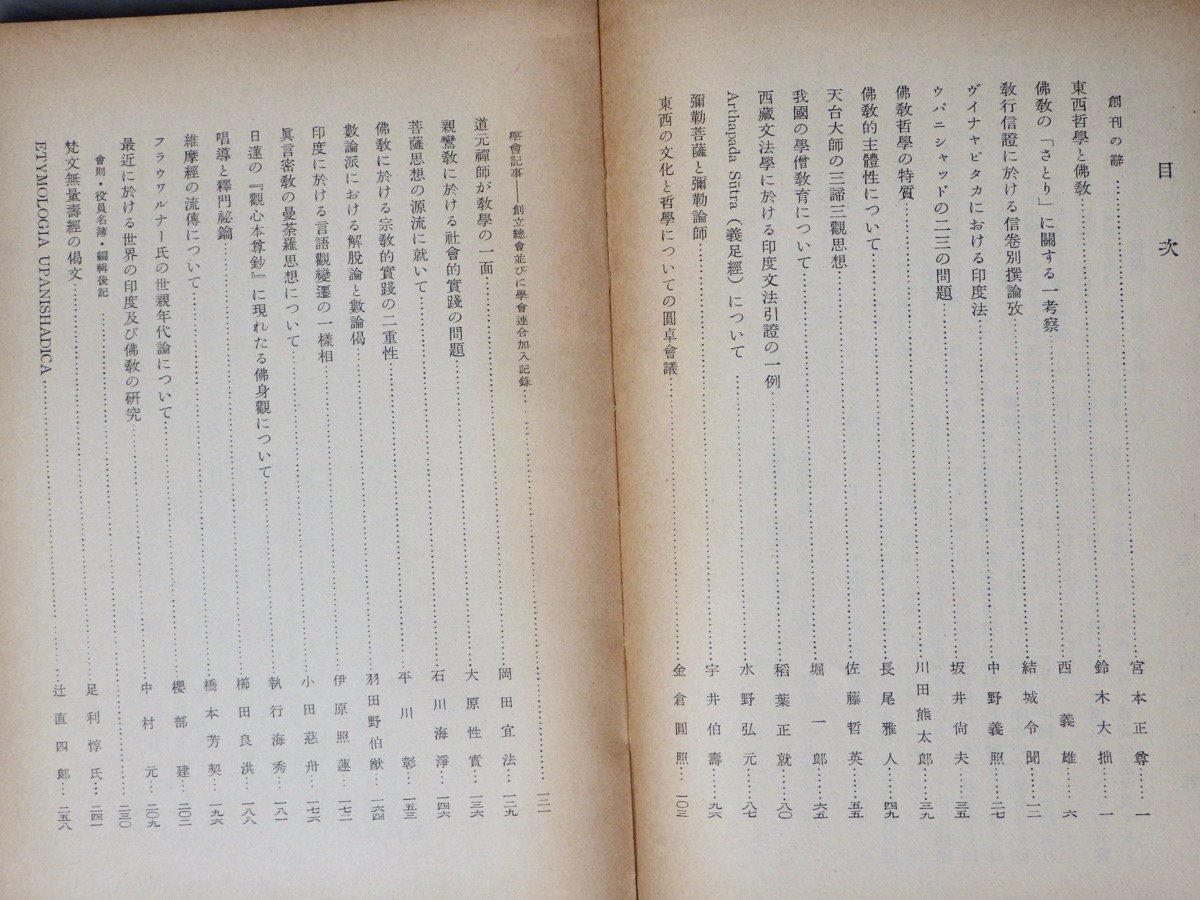 目次
創刊の辭……宮本正尊……一
東西哲學と佛教……鈴木大拙……一
佛教の「さとり」に關する一考察……西義雄……六
教行信證に於ける信卷別撰論攷……結城令聞……一二
ヴイナヤピタカにおける印度法……中野義照……二七
ウパニシャッドの二三の問題……坂井尙夫……三五
佛教哲學の特質……川田熊太郎……三九
佛教的主體性について……長尾雅人……四九
天台大師の三諦三觀思想……佐藤哲英……五五
我國の學僧教育について……堀一郎……六五
西藏文法學に於ける印度文法引證の一例……稻葉正就……八〇
Arthapada Sūtra（義足經）について……水野弘元……八七
彌勒菩薩と彌勒論師……宇井伯壽……九六
東西の文化と哲學についての圓卓會議……金倉圓照……一〇三
學會記事 創立總會並びに學會連合加入記錄……一二一
道元禪師が教學の一面……岡田宜法……一二九
親鸞教に於ける社會的實踐の問題……大原性實……一三六
菩薩思想の源流に就いて……石川海淨……一四六
佛教に於ける宗教的實踐の二重性……平川彰……一五三
數論派における解脫論と數論偈……羽田野伯猷……一六四
印度に於ける言語觀變遷の一樣相……伊原照蓮……一七二
眞言密教の曼荼羅思想について……小田慈舟……一七六
日蓮の『觀心本尊鈔』に現れたる佛身觀について……執行海秀……一八一
唱導と釋門祕鑰……櫛田良洪……一八八
維摩經の流傳について……橋本芳契……一九六
フラウワルナー氏の世親年代論について……櫻部建……二〇二
最近に於ける世界の印度及び佛教の硏究……中村元……二〇九
會則・役員名簿・編輯後記……二三〇
梵文無量壽經の偈文……足利惇氏……二四一
ETYMOLOGIA UPANISHADICA……辻直四郎……二五八